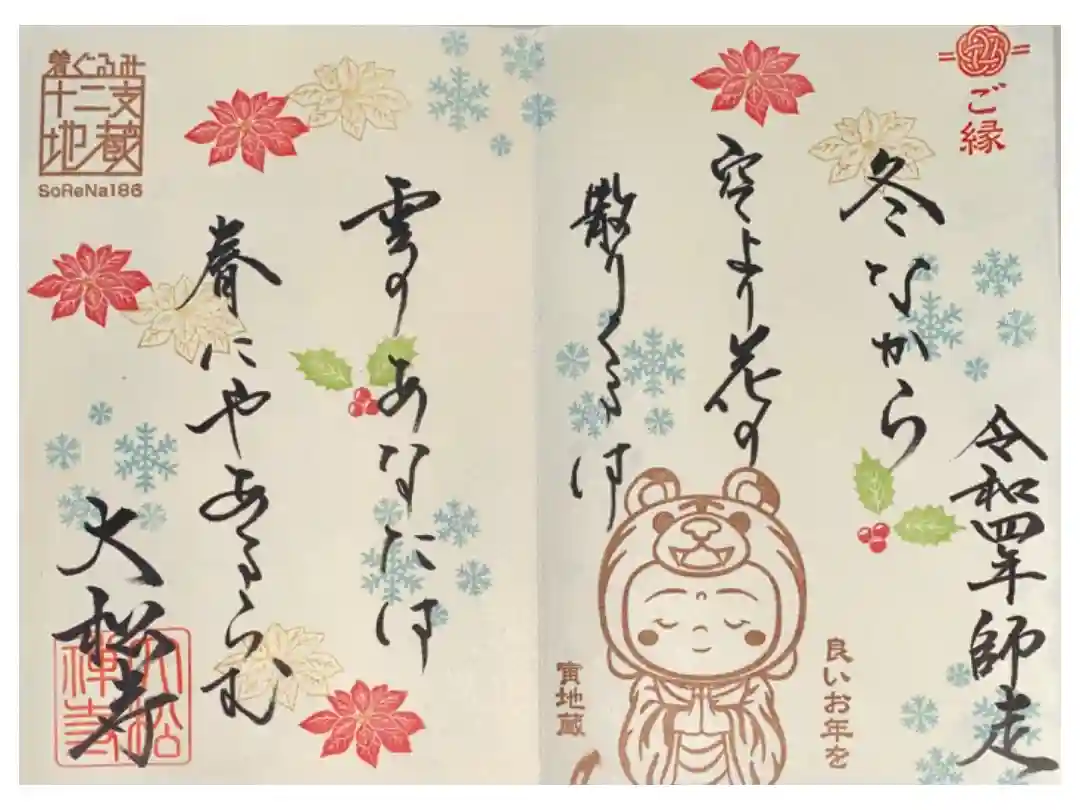 ご縁
令和四年師走
冬なから
空より花の
散りくるは
良いお年を
寅地蔵
雲のあなたは
春にやあるらむ
大松寺
大松
禅寺
着ぐるみ
十二支
地蔵
SoReNa186